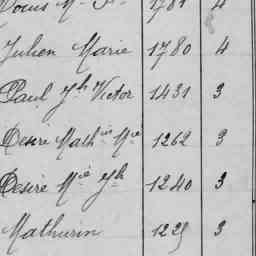 Louis Mie 1781 4
Julien Marie 1780 4
Paul Jh Victor 1431 3
Désiré Mathin Mie 1262 3
Désiré Mie Jh 1240 3
Mathurin 1225 3